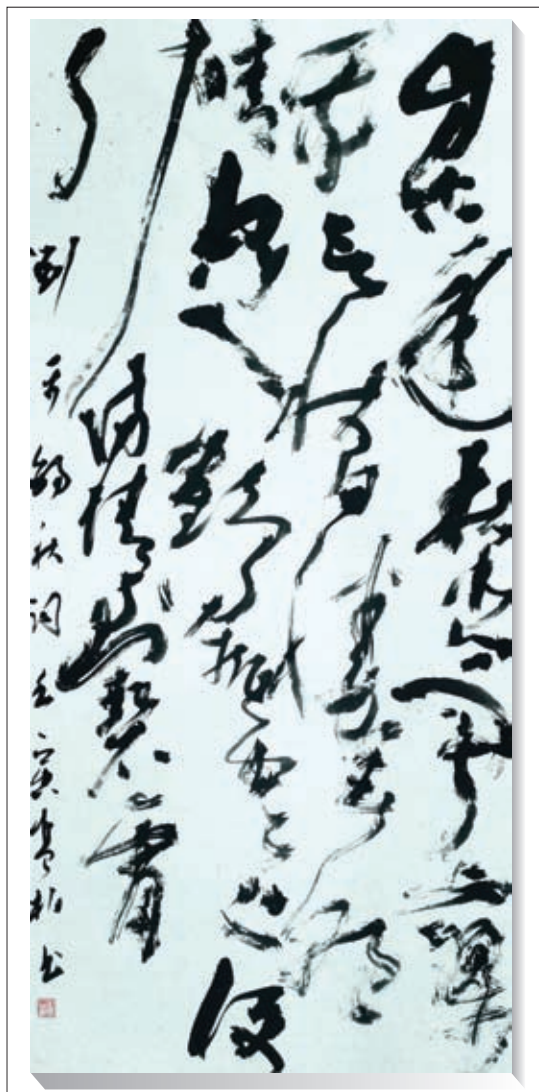 自古逢秋悲寂寥
我言秋日勝春朝
晴空一鶴排雲上便
引詩情到碧霄
劉禹錫秋詞 壬寅 书